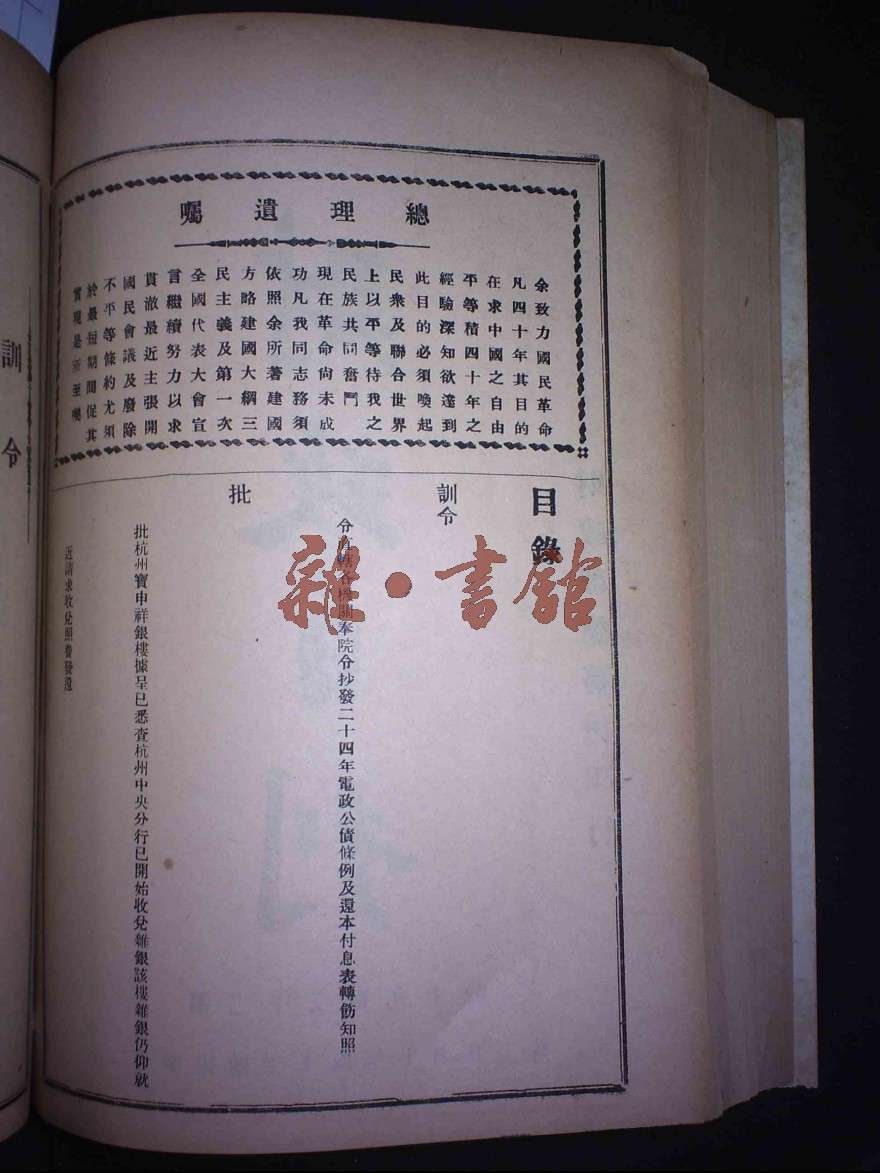 總理遺囑
余致力國民革命
凡四十年其目的
在求中國之自由
平等積四十年之
經驗深知欲達到
此目的必須喚起
民衆及聯合世界
上以平等待我之
民族共同奮鬥
現在革命尚未成
功凡我同志務須
依照余所著建國
方略建國大綱三
民主義及第一次
全國代表大會宣
言繼續努力以求
貫澈最近主張開
國民會議及廢除
不平等條約尤須
於最短期間促其
實現是所至囑
目錄
訓令
令直轄各機關奉院令抄發二十四年電政公債條例及還本付息表轉飭知照
批
批杭州寶申祥銀樓據呈已悉查杭州中央分行已開始收兌雜銀該樓雜銀仍仰就
近請求收兌照費發還
訓令
雜·書館